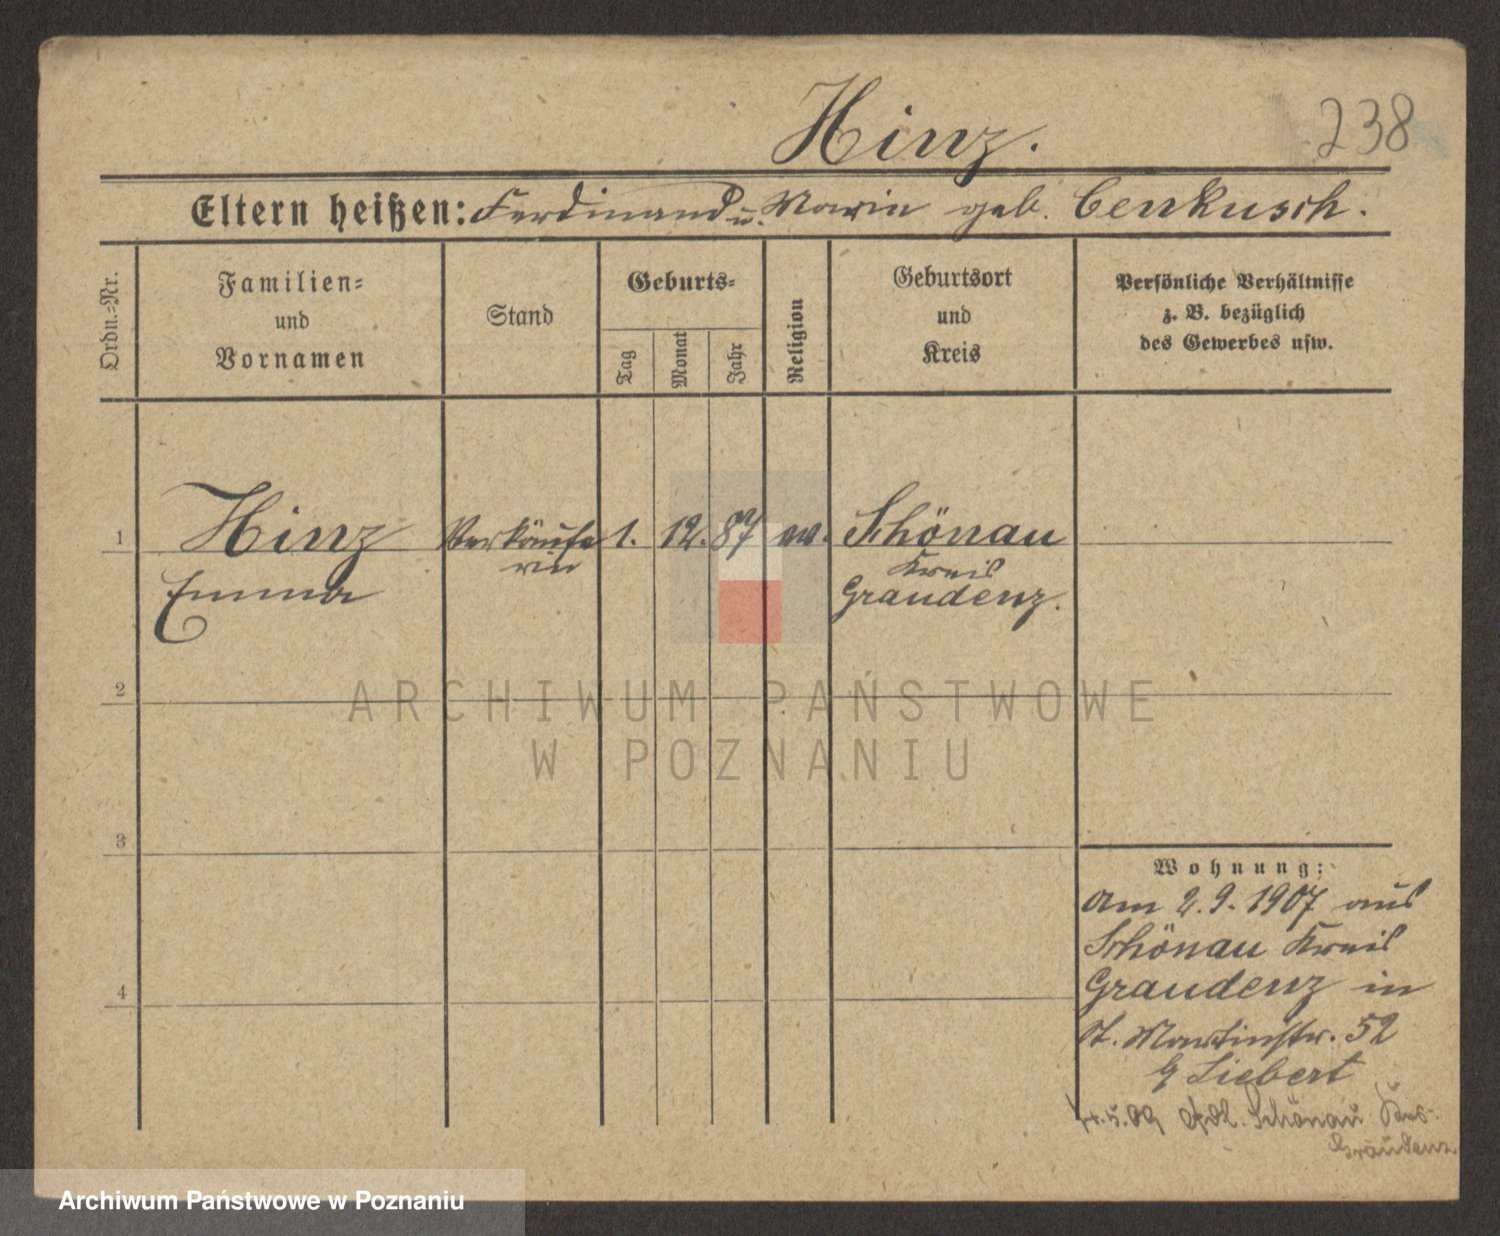 Hinz.
238
Eltern heißen: Ferdinand u. Marie geb. Cenkusch.
Ordn.-Nr.
Familien-
und
Vornamen
Stand
Geburts-
Tag
Monat
Jahr
Religion
Geburtsort
und
Kreis
Persönliche Verhältnisse
z. B. bezüglich
des Gewerbes usw.
1
Hinz
Verkäufe
1.
12.
87
ev.
Schönau
rin
Kreis
Emma
Graudenz.
2
ARCHIWUM PAŃSTWOWE
W POZNANIU
3
Wohnung:
am 2.9.1907 aus
Schönau Kreis
4
Graudenz in
St. Martinstr. 52
Liebert
4.5.09 Schönau
Graudenz
Archiwum Państwowe w Poznaniu